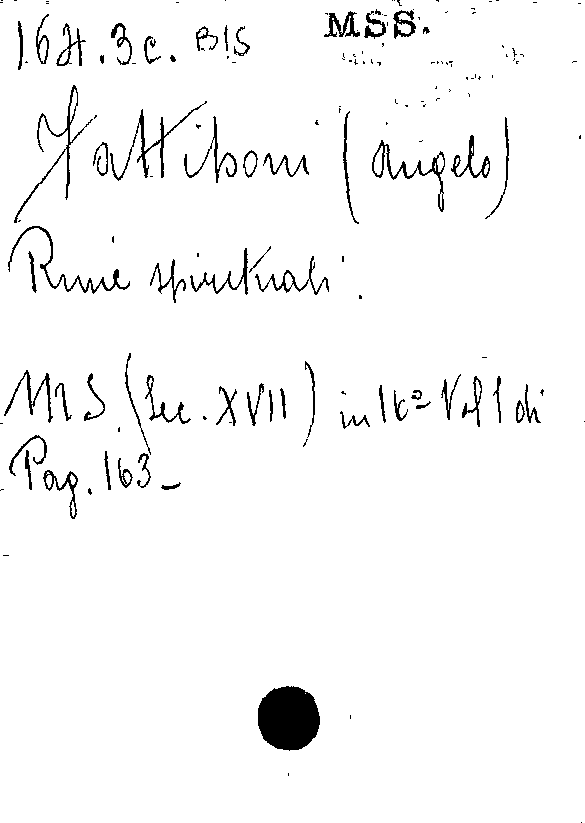 16H.3c. BIS MSS.
Fattiboni (Angelo)
Rime spirituali.
MS. (Sec. XVII) in 16º Vol 1 di
Pag. 163_